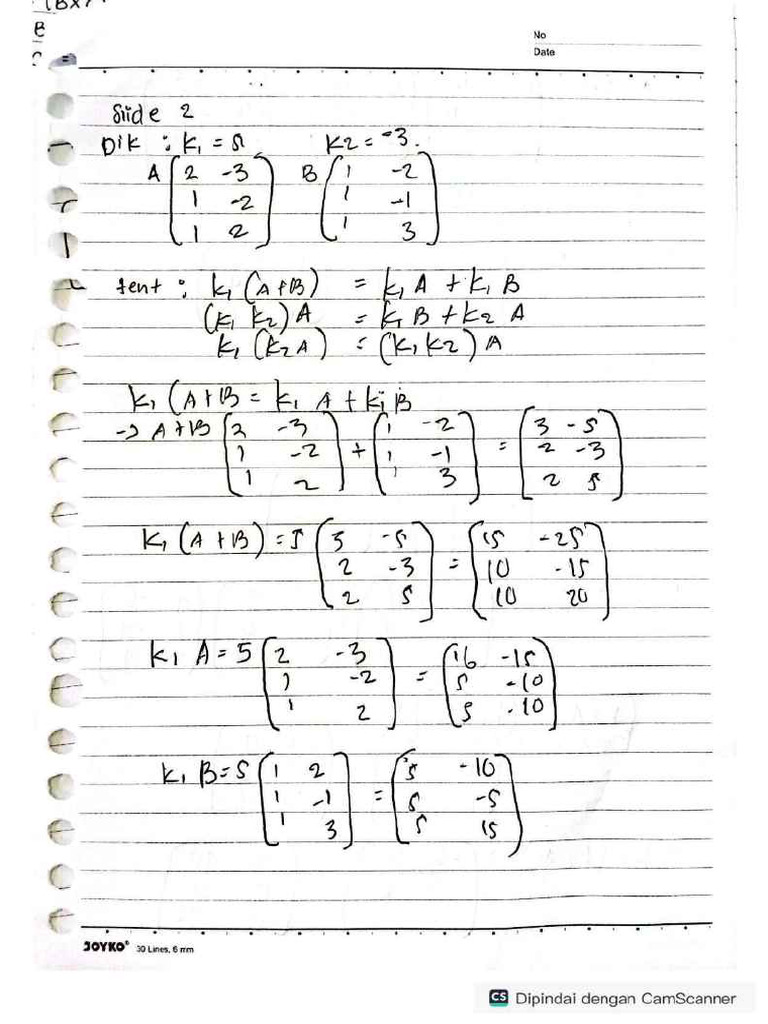 (Bx)
B
No
Date
Slide 2
Dik : k₁ = 5 k2 = -3.
A ( 2 -3 ) B ( 1 -2 )
1 -2 1 -1
1 2 1 3
tent : k₁ (A+B) = k₁ A + k₁ B
(k₁ k₂) A = k₁ B + k₂ A
k₁ (k₂ A) = (k₁ k₂) A
k₁ (A+B = k₁ A + k₁ B
-> A+B ( 2 -3 ) + ( 1 -2 ) = ( 3 -5 )
1 -2 1 -1 2 -3
1 2 1 3 2 5
k₁ (A+B) = 5 ( 3 -5 ) = ( 15 -25 )
2 -3 10 -15
2 5 10 20
k₁ A = 5 ( 2 -3 ) = ( 10 -15 )
1 -2 5 -10
1 2 5 -10
k₁ B = 5 ( 1 2 ) = ( 5 -10 )
1 -1 5 -5
1 3 5 15
JOYKO® 30 Lines, 6 mm
CS Dipindai dengan CamScanner